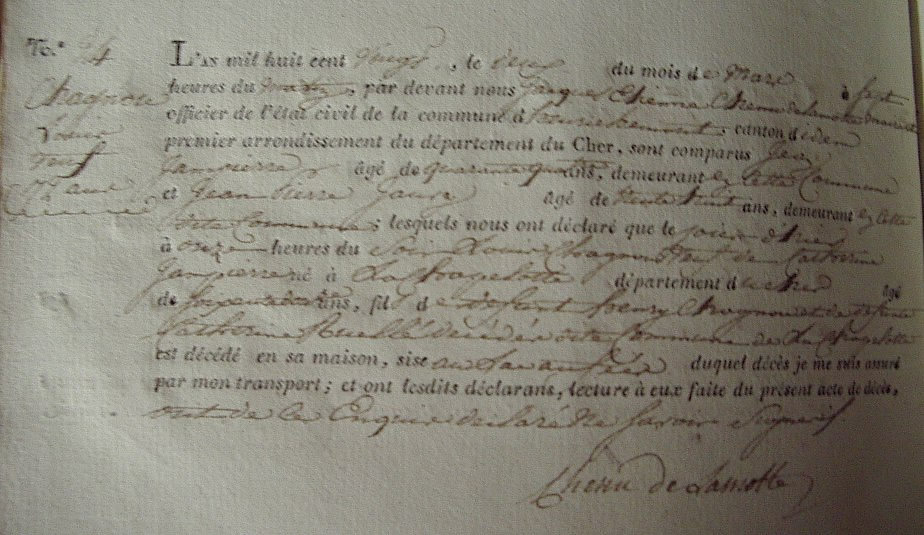 N.º 24
Chagnou
Louis
L'AN mil huit cent vingt, le deux du mois de Mars à sept
heures du matin, par devant nous Jacques Etienne Chenu de lamotte
officier de l'état civil de la commune d'henrichemont, canton d'idem
premier arrondissement du département du Cher, sont comparus
Janpierre âgé de quarante quatre ans, demeurant en Cette Commune
et Jean Pierre âgé de trente huit ans, demeurant en Cette
dite Commune; lesquels nous ont déclaré que le jour d'hier
à onze heures du Soir Louis Chagnou veuf de Catherine
Janpierre né à La Chapelotte département du Cher âgé
de ans, fils de défunt henry Chagnou et de défunte
Catherine décédés dite Commune de La Chapelotte
est décédé en sa maison, sise duquel décès je me suis assuré
par mon transport; et ont lesdits déclarans, lecture à eux faite du présent acte de décès,
ont de ce Enquis déclaré Ne Savoir Signer
Chenu de Lamotte